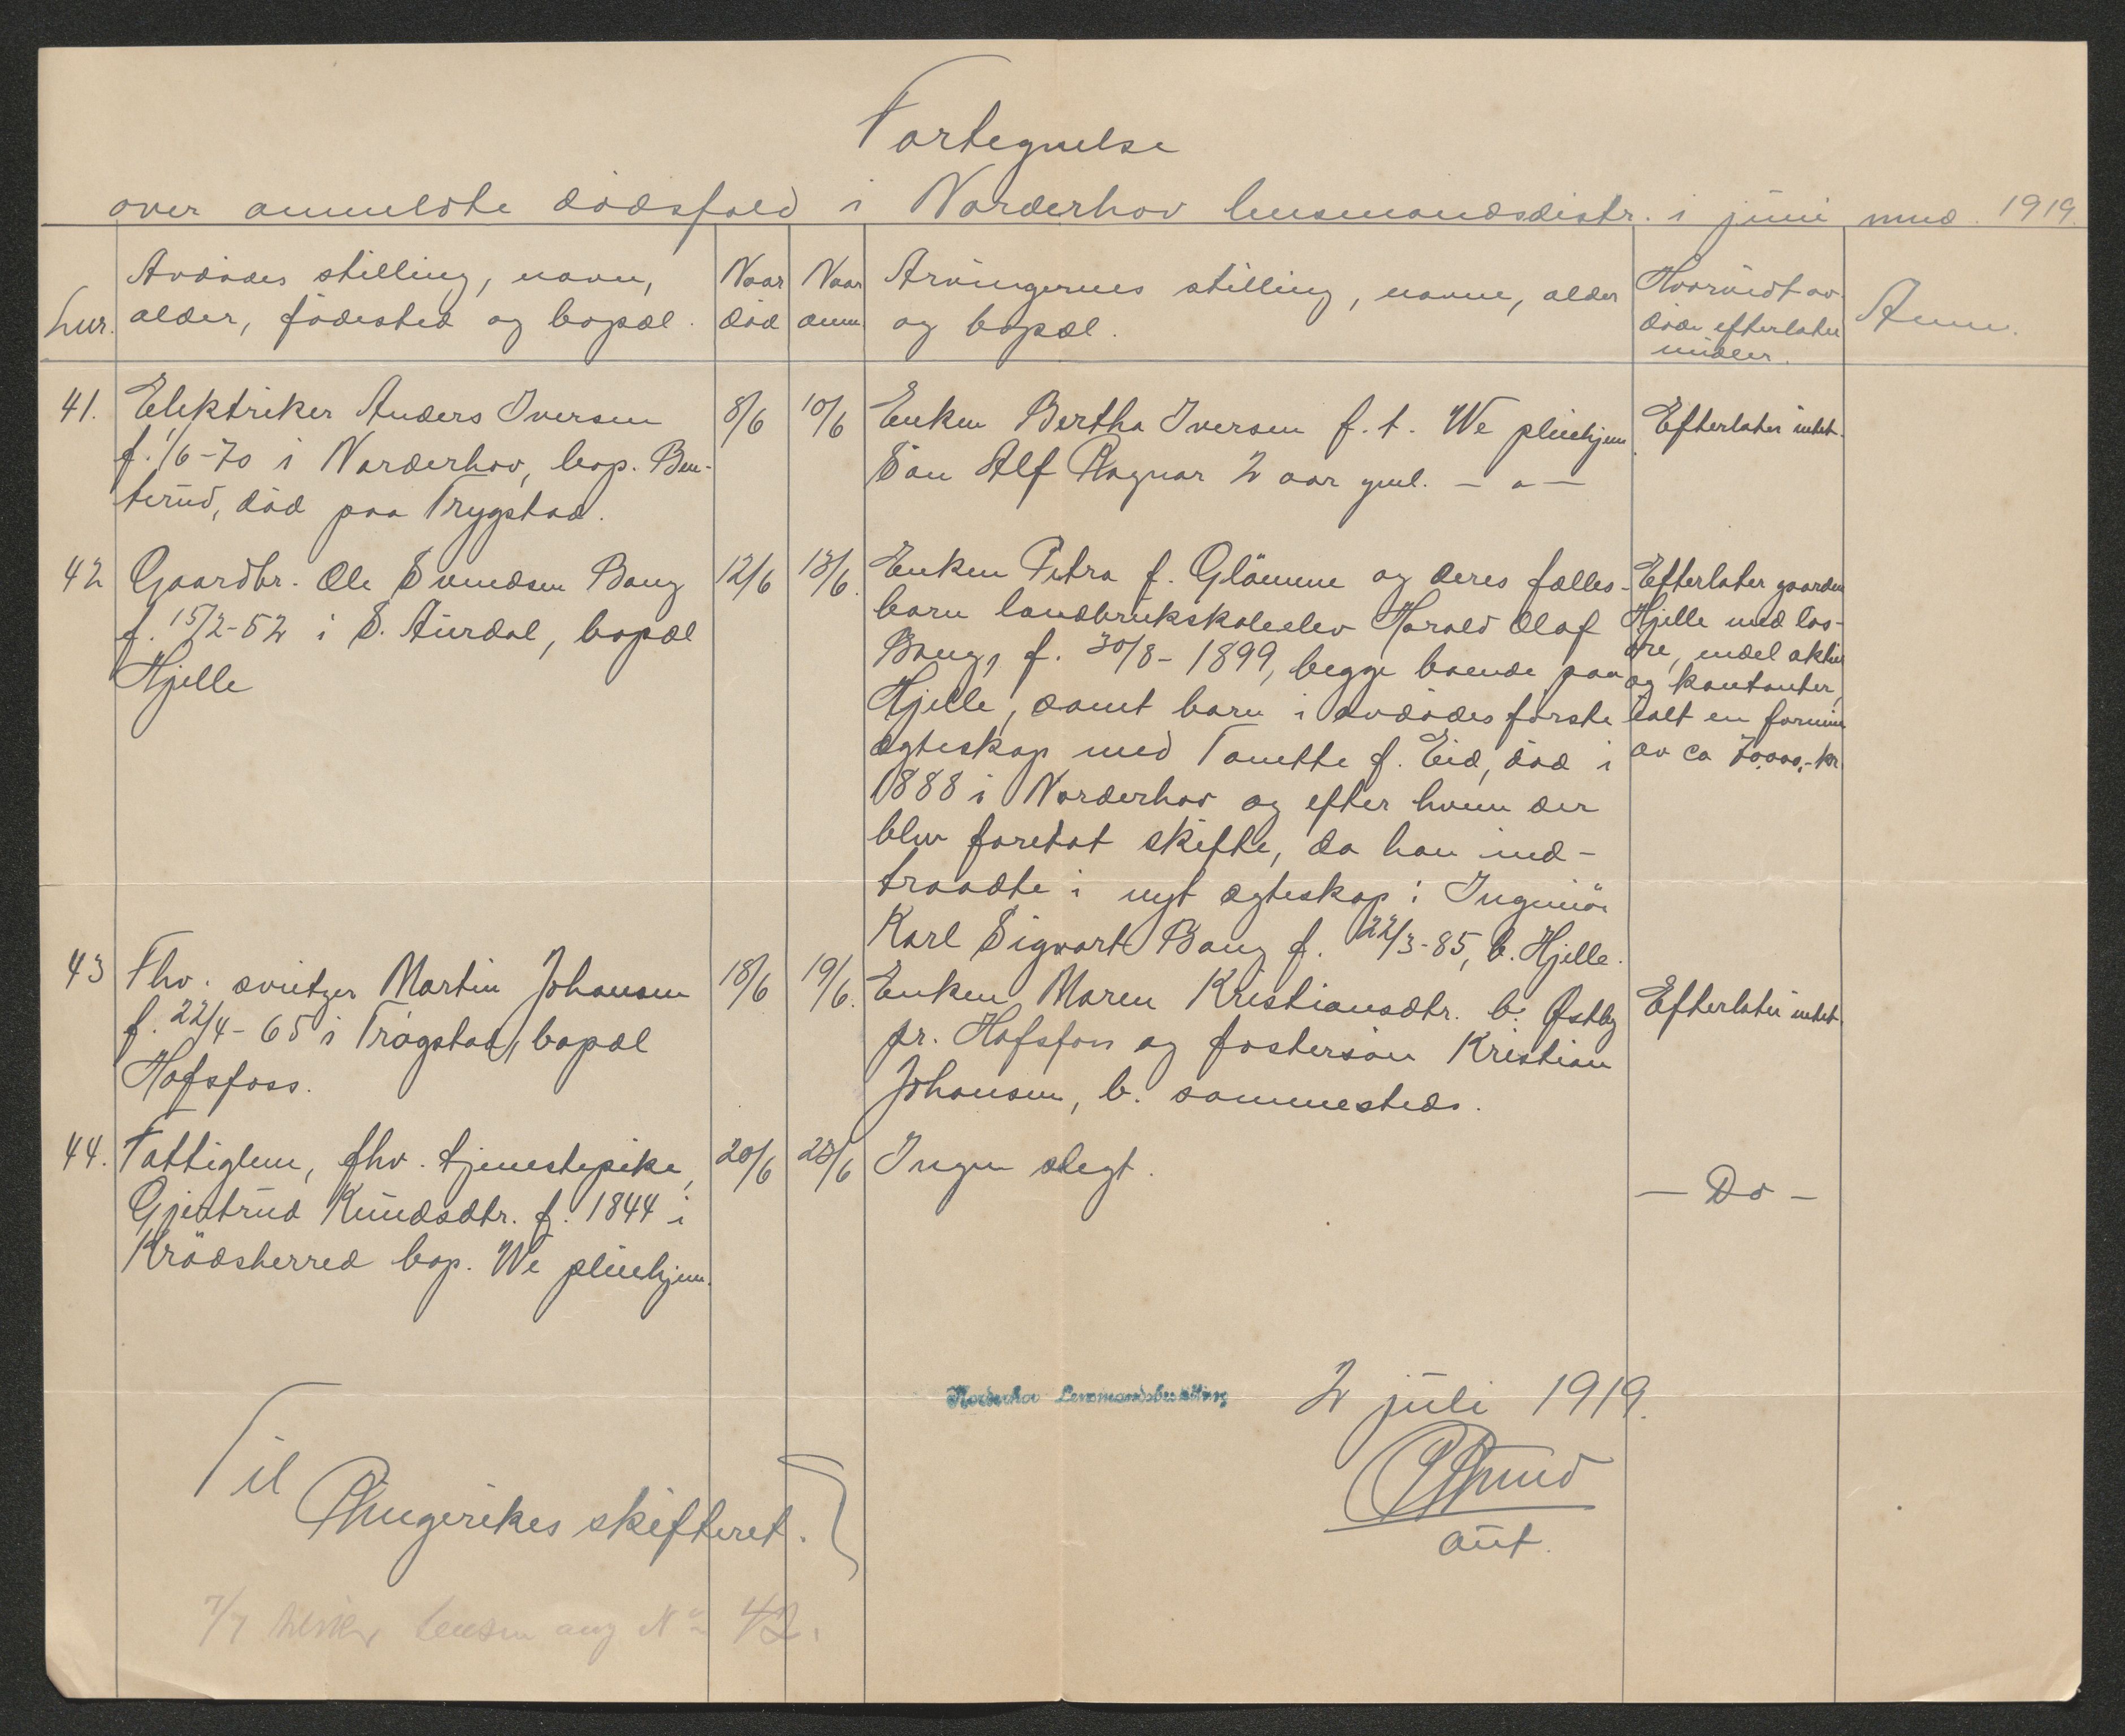 Fortegnelse
over anmeldte dødsfald i Norderhov lensmandsdistr. i juni mnd. 1919.
Lnr.
Avdødes stilling, navn,
alder, fødested og bopæl.
Naar
død
Naar
anm.
Arvingernes stilling, navne, alder
og bopæl.
Hvorvidt av-
døde efterlater
midler.
Anm.
41.
Elektriker Anders Iversen
f. 1/6-70 i Norderhov, bop. Ben-
terud, død paa Trygstad.
8/6
10/6
Enken Bertha Iversen f. t. We pleiehjem
Søn Alf Ragnar 2 aar gml. - " -
Efterlater intet.
42
Gaardbr. Ole Svendsen Bang
f. 15/2-52 i S. Aurdal, bopæl
Hjelle
12/6
13/6.
Enken Petra f. Glömme og deres fælles-
barn landbrukskoleelev Harald Olaf
Bang, f. 30/8-1899, begge boende paa
Hjelle, samt barn i avdødes første
egteskap med Tanette f. Eid, død i
1888 i Norderhov og efter hvem der
blev foretat skifte, da han ind-
traadte i nyt egteskap: Ingeniør
Karl Sigvart Bang f. 22/3-85, b. Hjelle.
Efterlater gaarden
Hjelle med løs-
øre, endel aktier
og kontanter,
ialt en formue
av ca 70,000,- kr.
43
Fhv. sveitzer Martin Johansen
f. 22/4-65 i Trøgstad, bopæl
Hofsfoss.
18/6
19/6.
Enken Maren Kristiansdtr. b. Østby
pr. Hofsfoss og fostersøn Kristian
Johansen, b. sammesteds.
Efterlater intet.
44.
Fattiglem, fhv. tjenestepike,
Gjertrud Knudsdtr. f. 1844 i
Krödsherred bop. We pleiehjem.
20/6
23/6
Ingen slegt.
- Do -
Norderhov Lensmandsbestilling
2 juli 1919.
aut.
Til
Ringerikes skifteret.
7/7 lensm ang No 42.